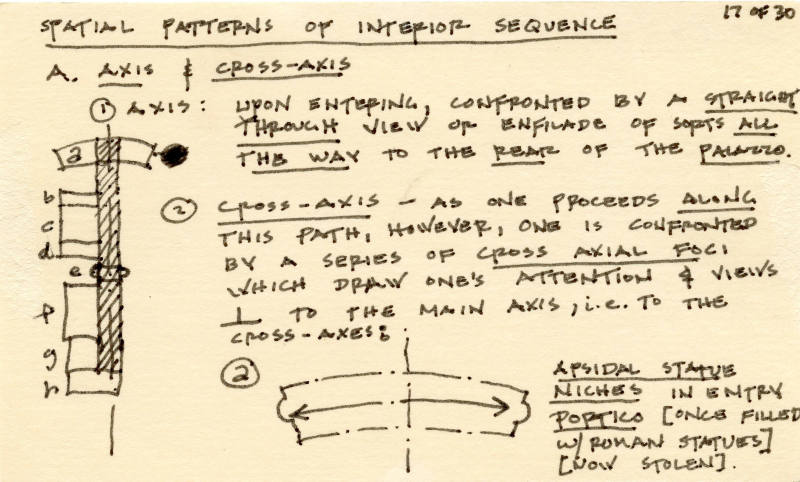 17 OF 30
SPATIAL PATTERNS OF INTERIOR SEQUENCE
A. AXIS & CROSS-AXIS
① AXIS: UPON ENTERING, CONFRONTED BY A STRAIGHT
THROUGH VIEW OR ENFILADE OF SORTS ALL
THE WAY TO THE REAR OF THE PALAZZO.
a
b
c
d
e
f
g
h
② CROSS-AXIS - AS ONE PROCEEDS ALONG
THIS PATH, HOWEVER, ONE IS CONFRONTED
BY A SERIES OF CROSS AXIAL FOCI
WHICH DRAW ONE'S ATTENTION & VIEWS
⊥ TO THE MAIN AXIS, i.e. TO THE
CROSS-AXES:
ⓐ
APSIDAL STATUE
NICHES IN ENTRY
PORTICO [ONCE FILLED
W/ ROMAN STATUES]
[NOW STOLEN].